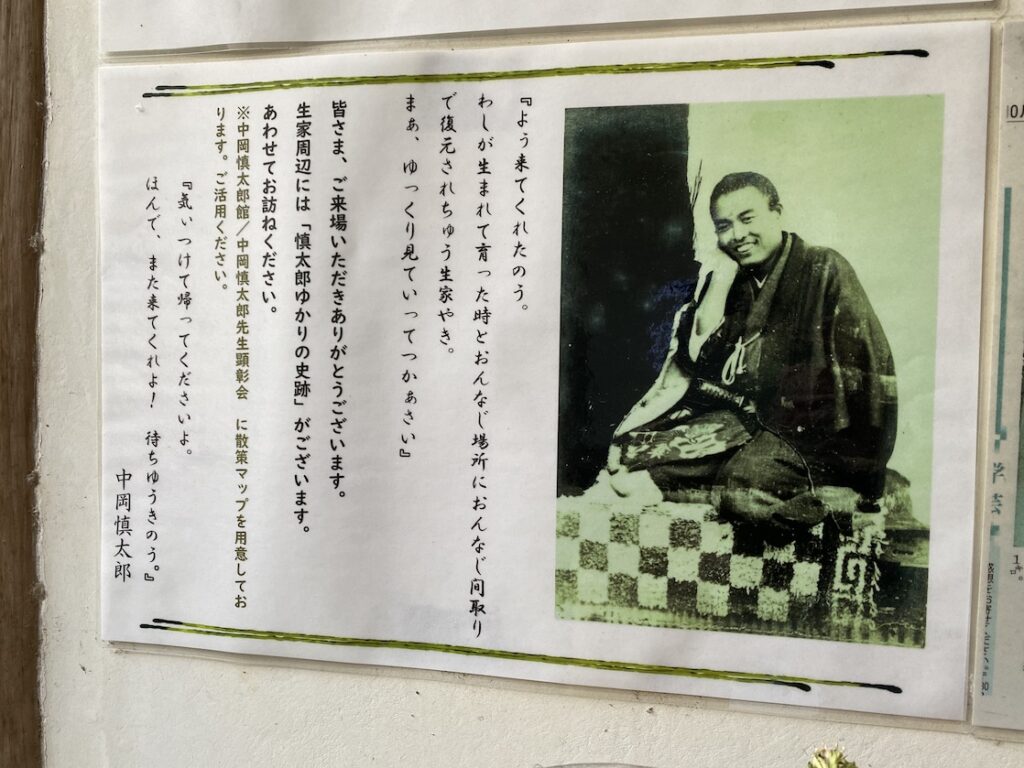 『よう来てくれたのう。
わしが生まれて育った時とおんなじ場所におんなじ間取り
で復元されちゅう生家やき。
まぁ、ゆっくり見ていってつかぁさい』
皆さま、ご来場いただきありがとうございます。
生家周辺には「慎太郎ゆかりの史跡」がございます。
あわせてお訪ねください。
※中岡慎太郎館／中岡慎太郎先生顕彰会　に散策マップを用意してお
ります。ご活用ください。
『気いつけて帰ってくださいよ。
ほんで、また来てくれよ！　待ちゆうきのう。』
中岡慎太郎
学芸